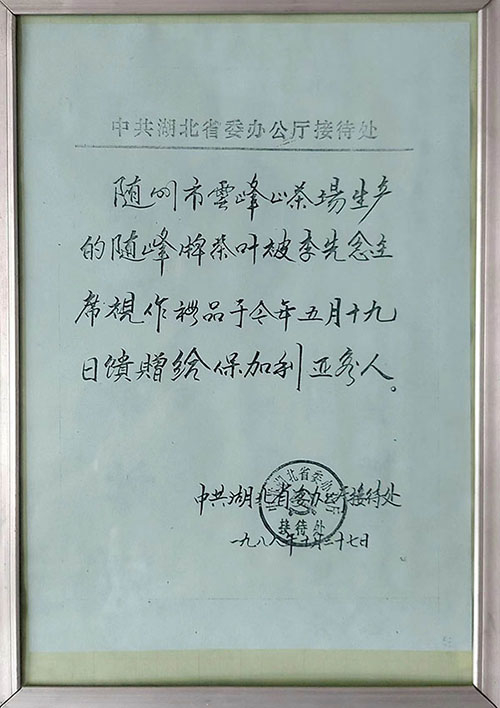 中共湖北省委办公厅接待处
随州市雲峰山茶場生产
的随峰牌茶叶被李先念主
席視作禮品于今年五月十九
日馈贈给保加利亚客人。
中共湖北省委办公厅接待处
接待处
一九八八年十月二十七日